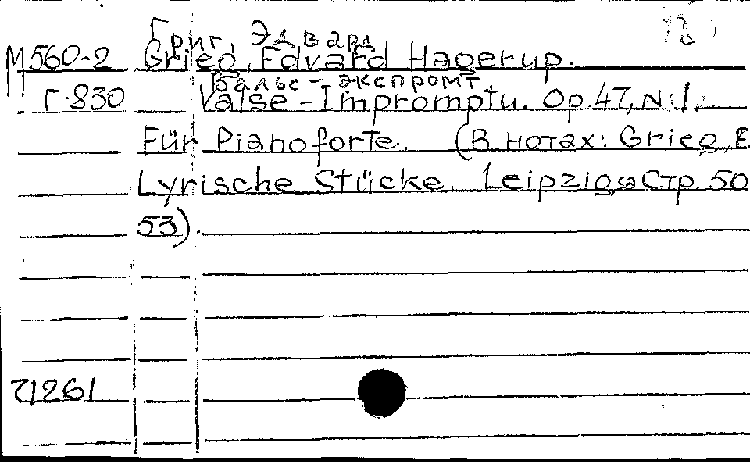 Григ, Эдвард
М560-2 Grieg, Edvard Hagerup.
Вальс-экспромт
Г-830 Valse-Impromptu. Op. 47, N:1.
Für Pianoforte. (В нотах: Grieg, E.
Lyrische Stücke. Leipzig, Стр. 50
53).
21261